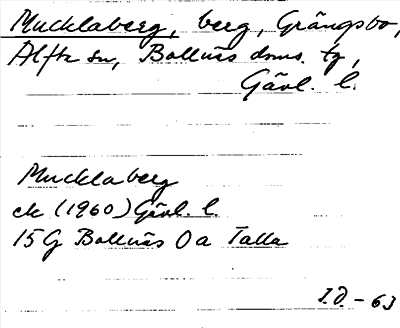 Mucklaberg, berg, Grängsbo,
Alfta sn, Bollnäs doms. tg,
Gävl. l.
Mucklaberg
ek (1960) Gävl. l.
15G Bollnäs Oa Talla
I.D. - 63